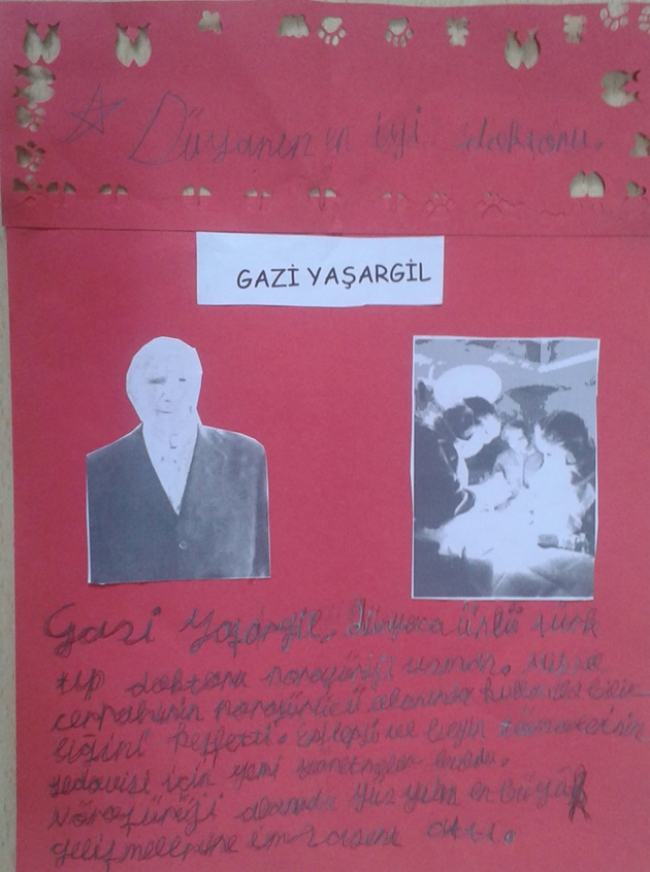 Dünyanın en iyi doktoru.
GAZİ YAŞARGİL
Gazi Yaşargil, dünyaca ünlü türk
tıp doktoru noroşürüji uzmanı. Mikro
cerrahinin noroşürüci alanında kullanıla bilir
liğini keşfetti. epilepsi ve beyin tümörünün
tedavisi için yeni buldu.
Nöroşürüji alanında yüz yılın en büyük
gelişmelerine imzasını attı.